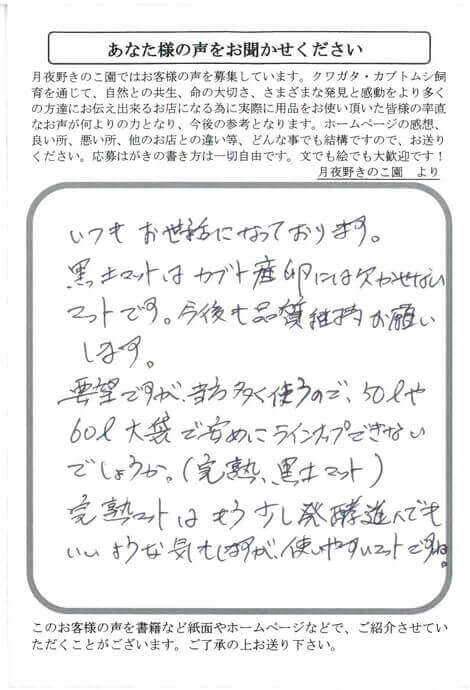 あなた様の声をお聞かせください
月夜野きのこ園ではお客様の声を募集しています。クワガタ・カブトムシ飼
育を通じて、自然との共生、命の大切さ、さまざまな発見と感動をより多く
の方達にお伝え出来るお店になる為に実際に用品をお使い頂いた皆様の率直
なお声が何よりの力となり、今後の参考となります。ホームページの感想、
良い所、悪い所、他のお店との違い等、どんな事でも結構ですので、お送り
ください。応募はがきの書き方は一切自由です。文でも絵でも大歓迎です！
月夜野きのこ園　より
いつも お世話になっております。
黒土マットは カブト産卵には欠かせない
マットです。今後も品質維持お願い
します。
要望ですが、多く使うので、50ℓや
60ℓ 大袋で安めにラインナップできない
でしょうか。(完熟、黒土マット)
完熟マットは もう少し発酵進んでも
いいような気もしますが、使いやすいマットですね。
このお客様の声を書籍など紙面やホームページなどで、ご紹介させてい
ただくことがございます。ご了承の上お送り下さい。